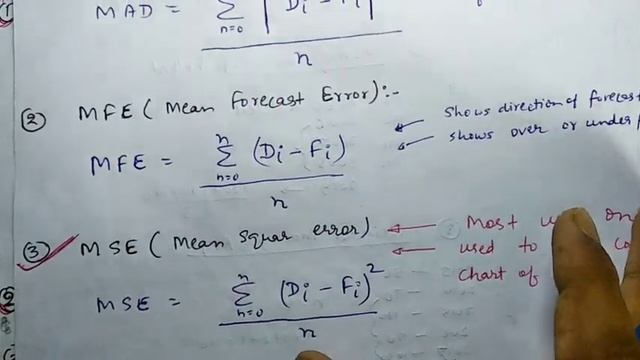 ① MAD = Σ |Di - Fi|
n=0
n
② MFE (Mean Forecast Error):-
MFE = Σ (Di - Fi)
n
n=0
n
Shows direction of
shows over or under
③ MSE (Mean Squar error)
MSE = Σ (Di - Fi)²
n
n=0
n
Most
used to
chart of